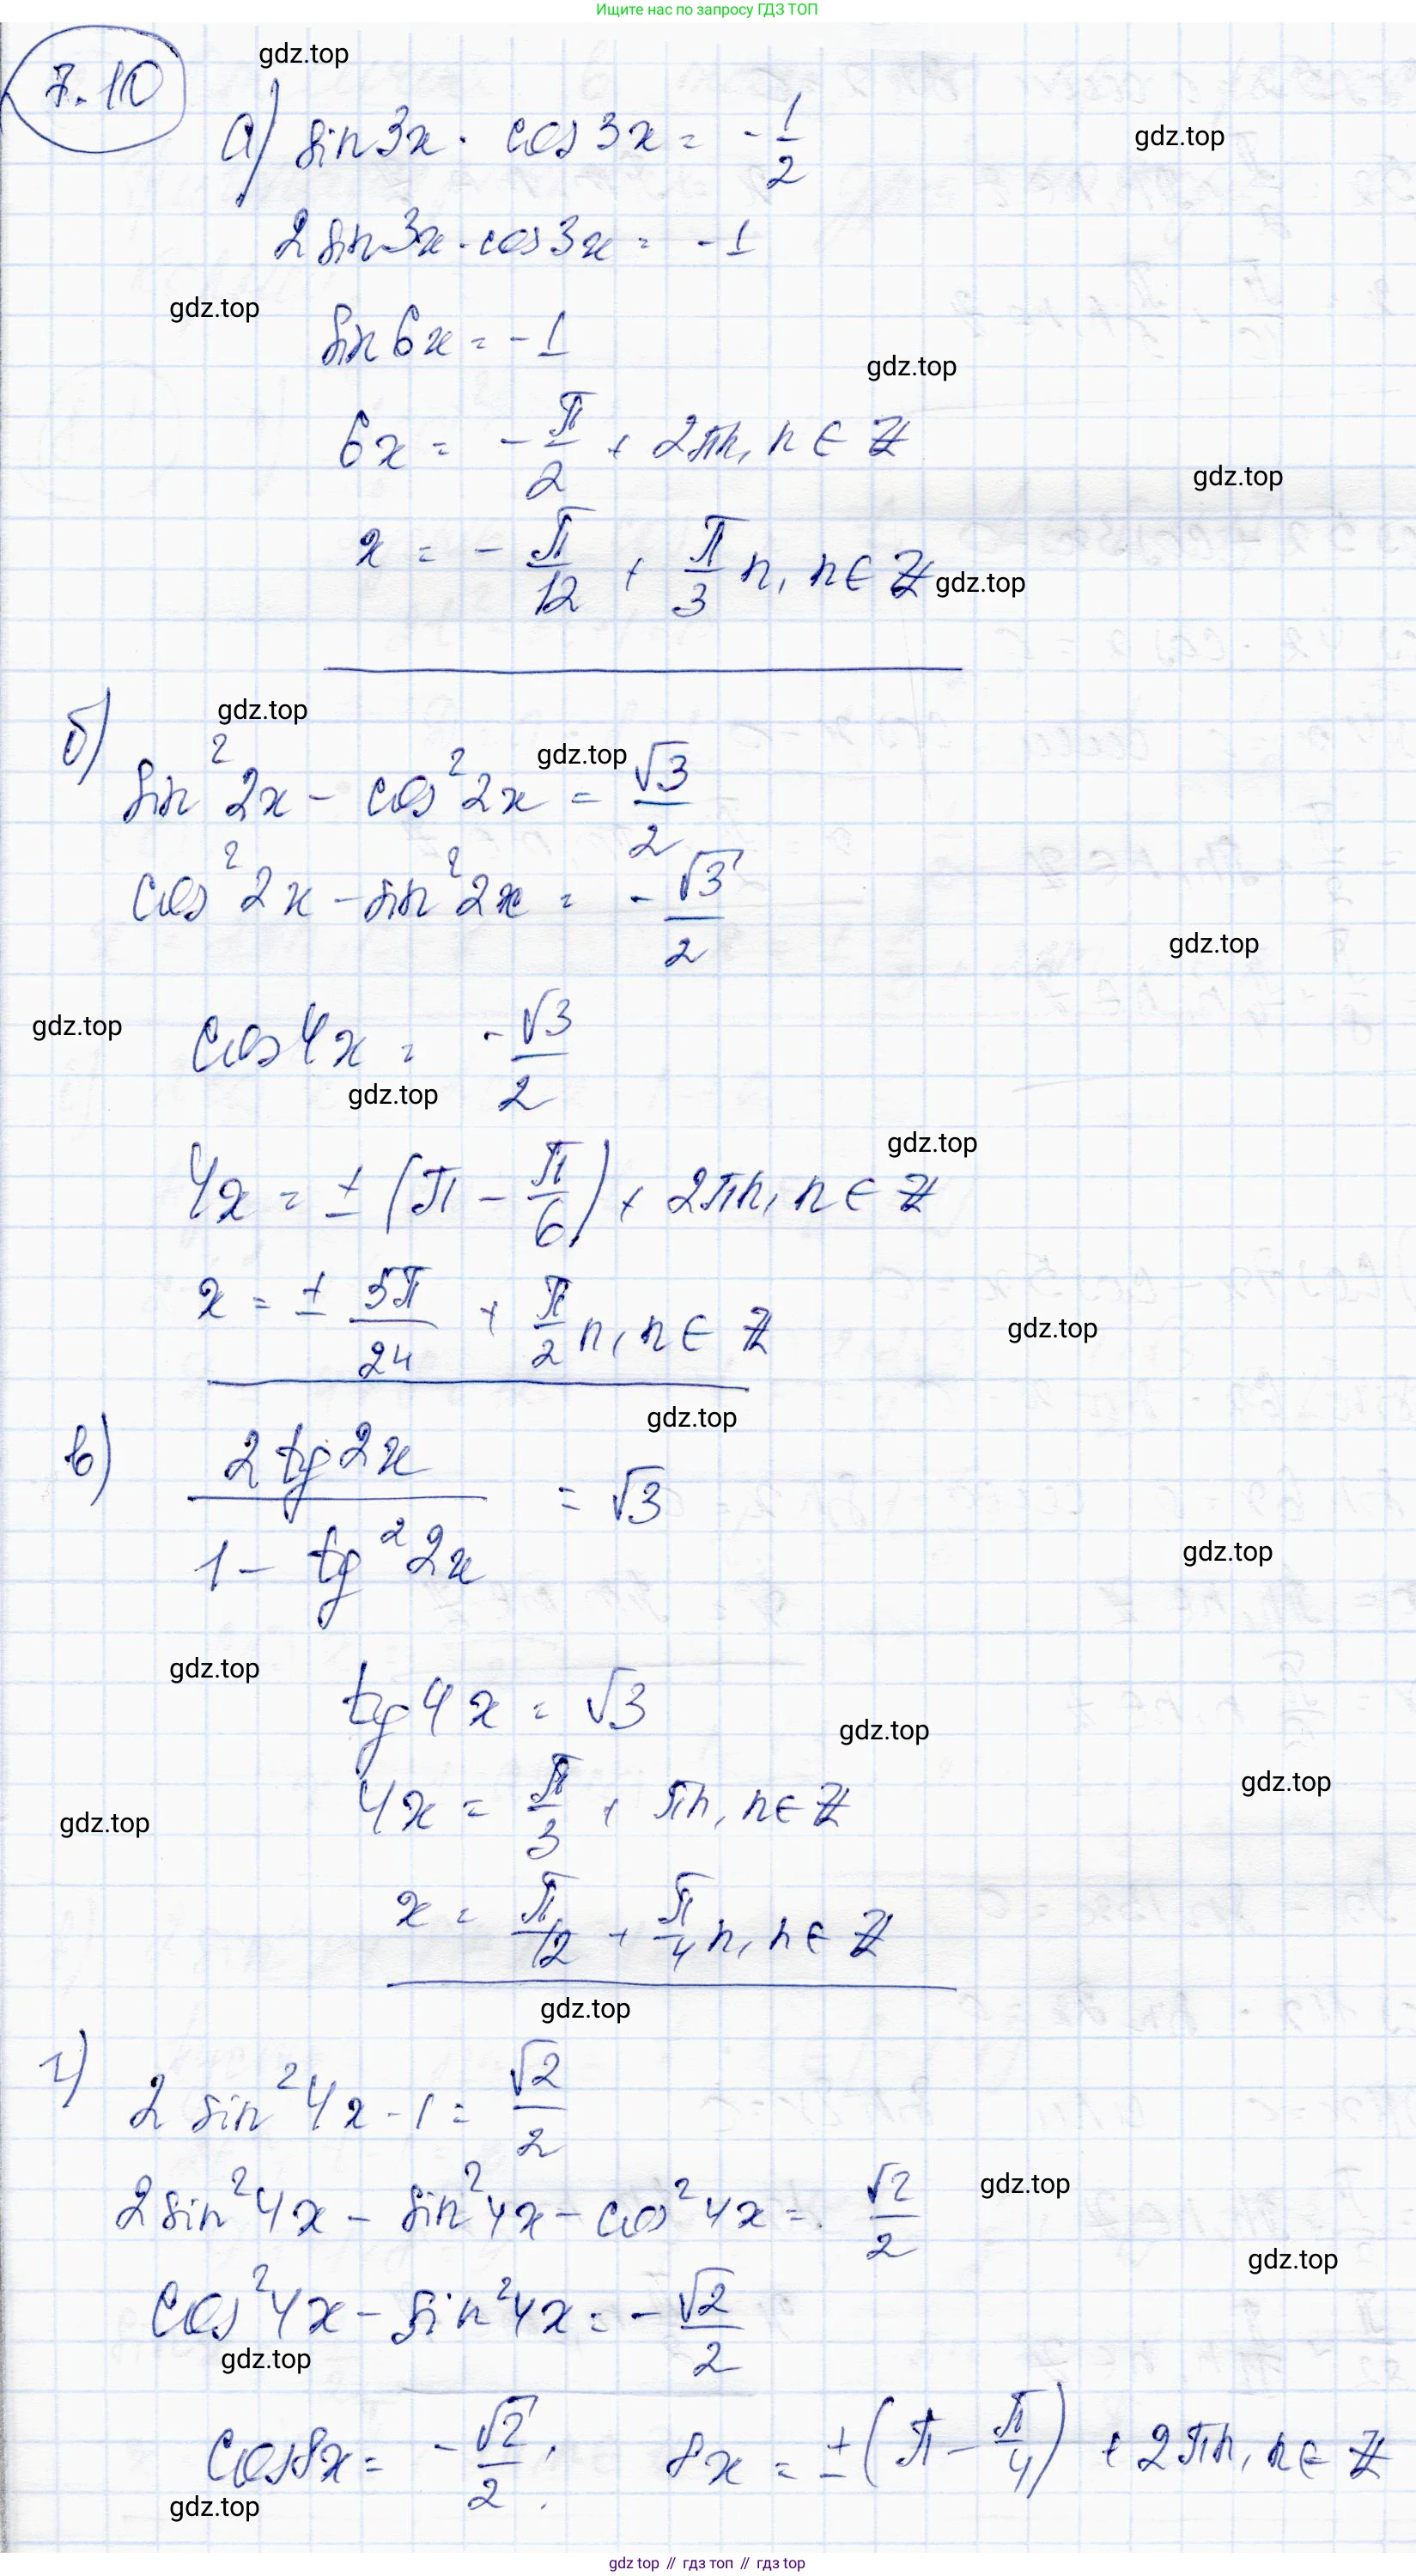 Ищите нас по запросу ГДЗ ТОП
7.10
gdz.top
а) sin3x · cos3x = -1/2
gdz.top
2sin3x·cos3x = -1
gdz.top
sin6x = -1
gdz.top
6x = -π/2 + 2πn, n ∈ Z
gdz.top
x = -π/12 + π/3 n, n ∈ Z
gdz.top
б)
gdz.top
gdz.top
sin²2x - cos²2x = √3/2
cos²2x - sin²2x = -√3/2
gdz.top
gdz.top
cos4x = -√3/2
gdz.top
gdz.top
4x = ±(π - π/6) + 2πn, n ∈ Z
x = ± 5π/24 + π/2 n, n ∈ Z
gdz.top
gdz.top
в) 2tg2x / (1 - tg²2x) = √3
gdz.top
gdz.top
tg4x = √3
gdz.top
gdz.top
4x = π/3 + πn, n ∈ Z
gdz.top
x = π/12 + π/4 n, n ∈ Z
gdz.top
г) 2 sin²4x - 1 = √2/2
gdz.top
2sin²4x - sin²4x - cos²4x = √2/2
gdz.top
cos²4x - sin²4x = -√2/2
gdz.top
cos8x = -√2/2; 8x = ±(π - π/4) + 2πn, n ∈ Z
gdz.top
gdz top // гдз топ // gdz top